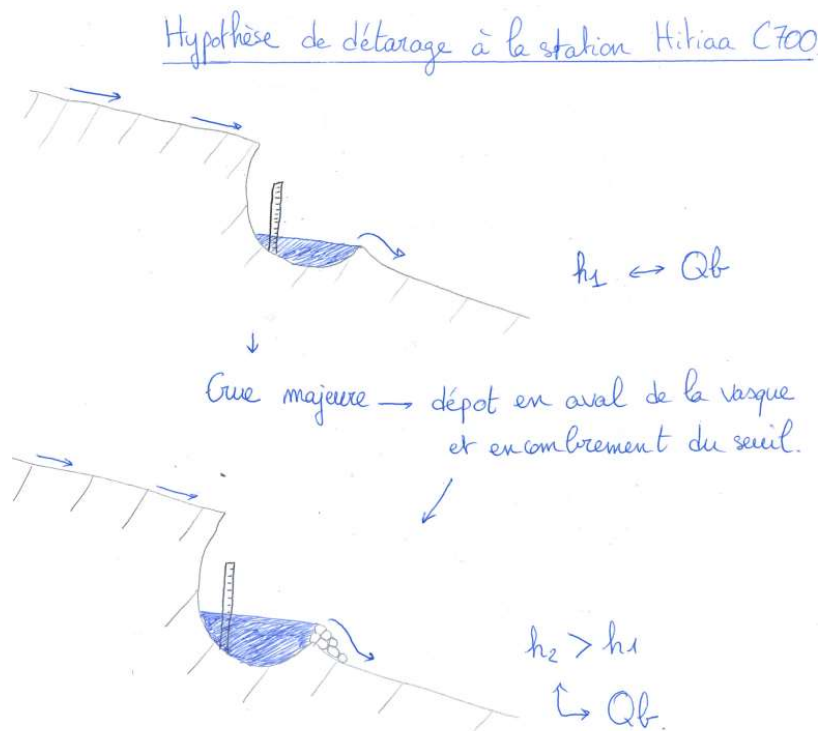 Hypothèse de détarage à la station Hitiaa C700
h1 ↔ Qb
↓
Crue majeure → dépot en aval de la vasque
et encombrement du seuil.
h2 > h1
↳ Qb.